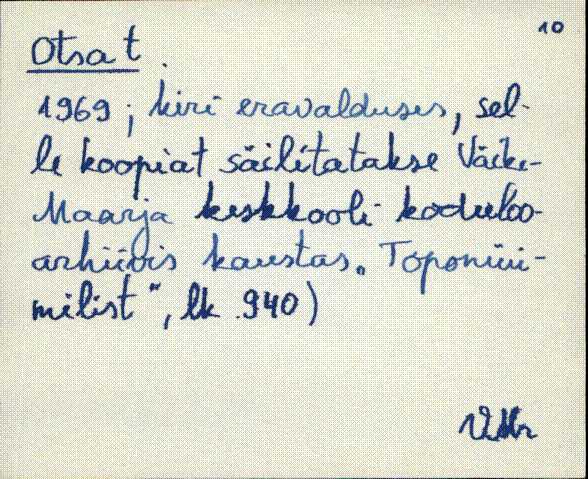 10
Otsa t.
1969; kiri eravalduses, sel-
le koopiat säilitatakse Väike-
Maarja keskkooli koduloo-
arhiivis kaustas „Toponüü-
milist", lk. 940)
VMr